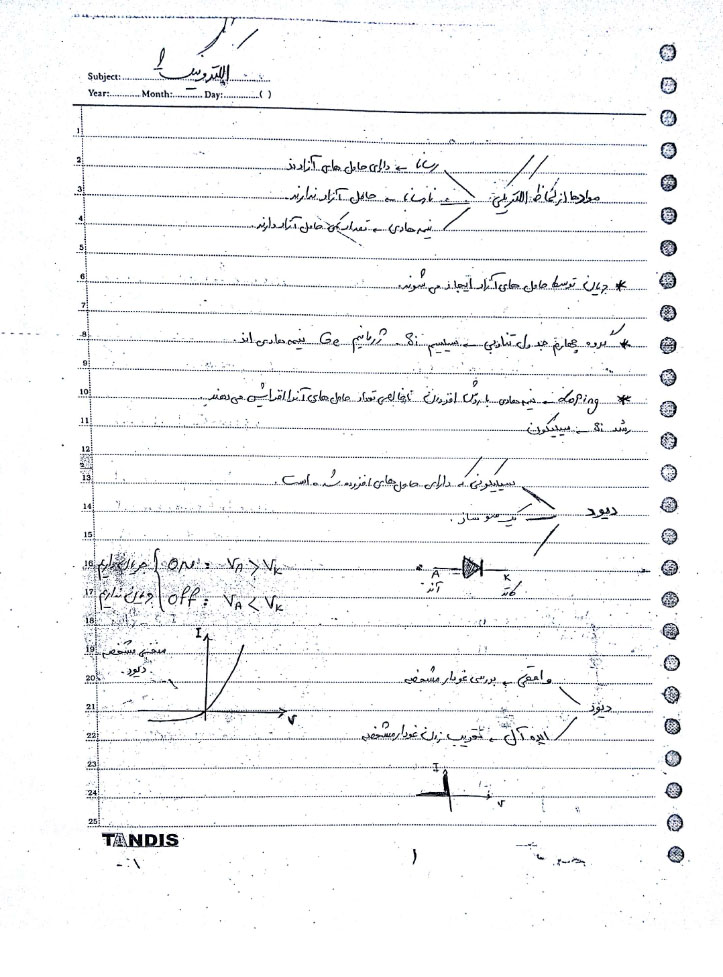 Subject: الکترونیک 1
Year: Month: Day: ( )
1
2
3
4
5
6
7
8
9
10
11
12
13
14
15
16
17
18
19
20
21
22
23
24
25
موادها از لحاظ الکتریکی
رسانا - دارای حامل های آزادند
نارسانا - حامل آزاد ندارند
نیمه هادی - تعداد کمی حامل آزاد دارند.
* جریان توسط حامل های آزاد ایجاد می شوند.
* گروه چهارم جدول تناوبی - سیلیسیم Si - ژرمانیم Ge نیمه هادی اند.
* doping - نیمه هادی با روش افزودن ناخالصی تعداد حامل های آنرا افزایش می دهند
Si - سیلیکون
دیود
سیلیکونی که دارای حامل های افزوده شده است.
یک سو ساز.
A
آند
K
کاتد
ON: VA > VK جریان داریم
off: VA < VK جریان نداریم
منحنی مشخصه
دیود.
I
V
دیود
واقعی - بررسی نمودار مشخصه
ایده آل - تقریب زدن نمودار مشخصه
I
V
TANDIS
1